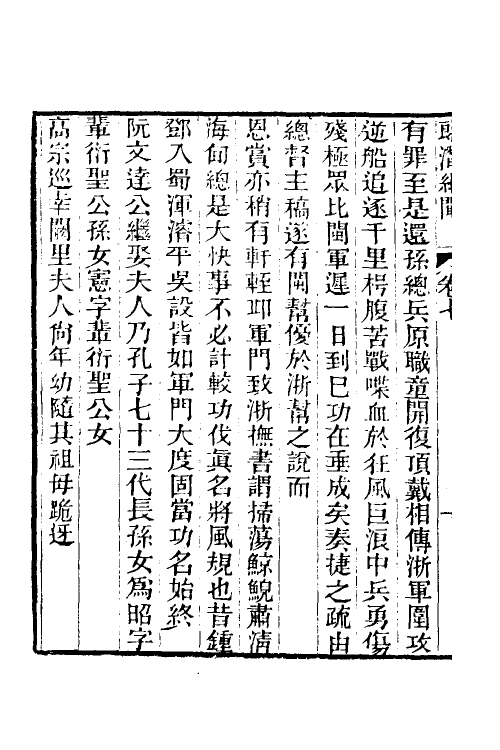 郎潛紀聞 卷七 一
有罪至是還孫總兵原職童開復頂戴相傳浙軍圍攻
逆船追逐千里枵腹苦戰喋血於狂風巨浪中兵勇傷
殘極眾比閩軍遲一日到已功在垂成矣奏捷之疏由
總督主稿遂有閩幫優於浙幫之說而
恩賞亦稍有軒輊邱軍門致浙撫書謂掃蕩鯨鯢肅清
海甸總是大快事不必計較功伐真名將風規也昔鍾
鄧入蜀渾濬平吳設皆如軍門大度固當功名始終
阮文達公繼娶夫人乃孔子七十三代長孫女為昭字
輩衍聖公孫女憲字輩衍聖公女
高宗巡幸闕里夫人尚年幼隨其祖母跪迓